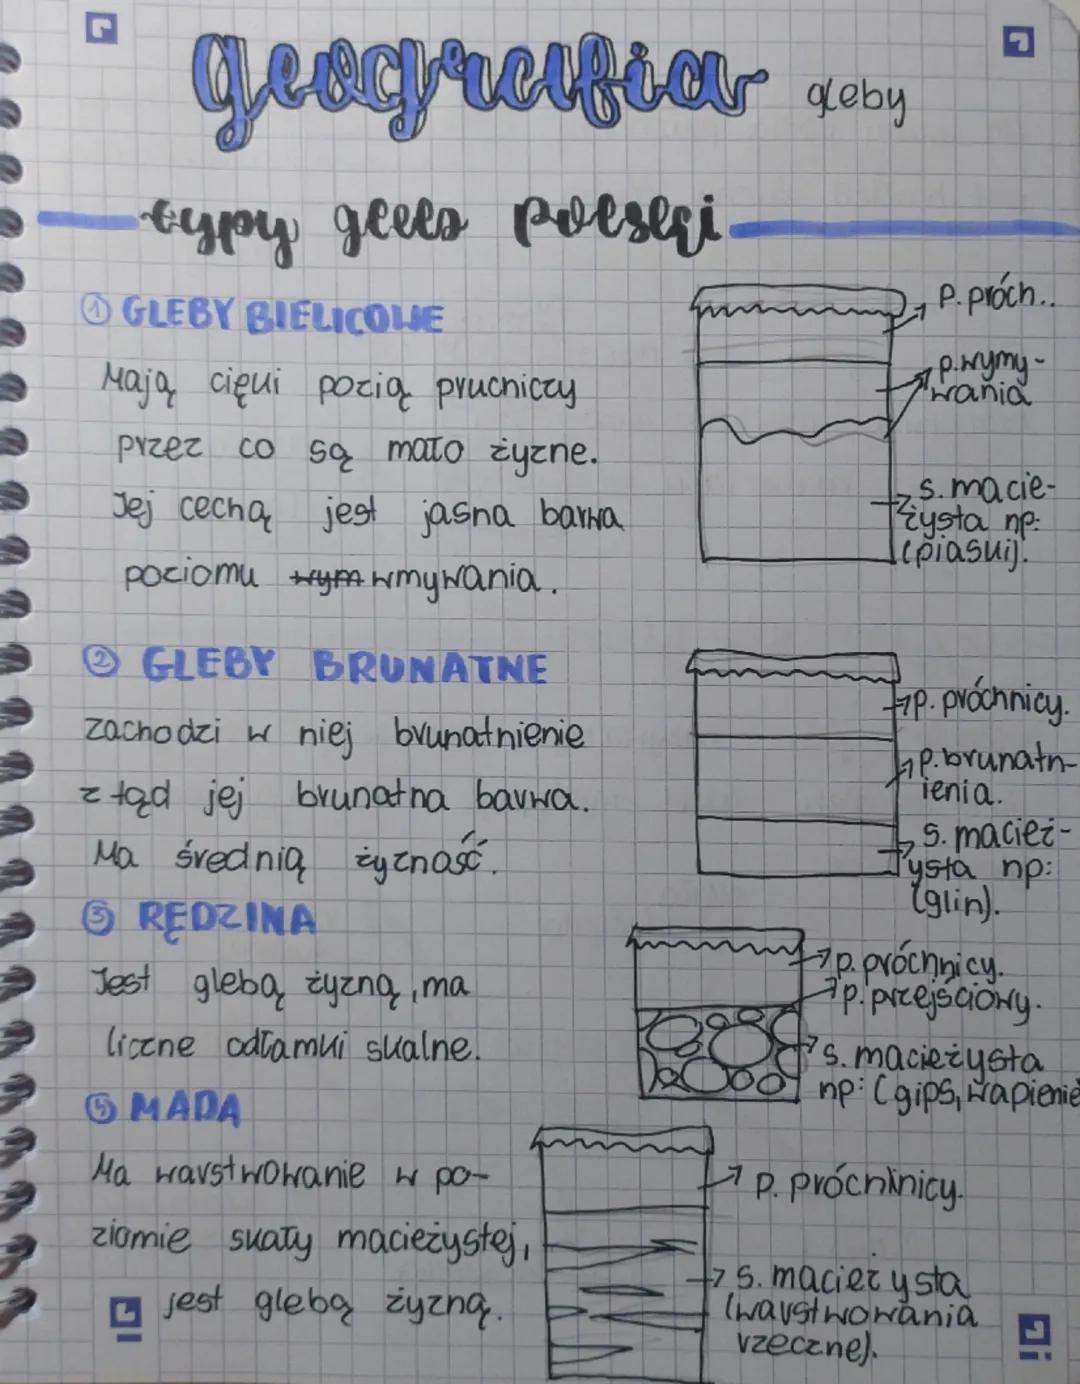 geografia gleby
typy gleb polski
① GLEBY BIELICOWE
Mają cięki pozią prucniczy
przez co są mało żyzne.
Jej cechą jest jasna barwa
poziomu wym wmywania.
p. próch..
p. wymy-
wania
s. macie-
żysta np:
(piaski).
② GLEBY BRUNATNE
zachodzi w niej brunatnienie
z tąd jej brunatna barwa.
Ma średnią żyzność.
p. próchnicy.
p. brunatn-
ienia.
s. macież-
ysta np:
(glin).
③ RĘDZINA
Jest glebą żyzną, ma
liczne odłamki skalne.
p. próchnicy.
p. przejściowy.
s. macieżysta
np: (gips, wapienie
⑤ MADA
Ma warstwowanie w po-
ziomie skały macieżystej,
jest glebą żyzną.
p. próchninicy.
s. macieżysta
(warstwowania
rzeczne).